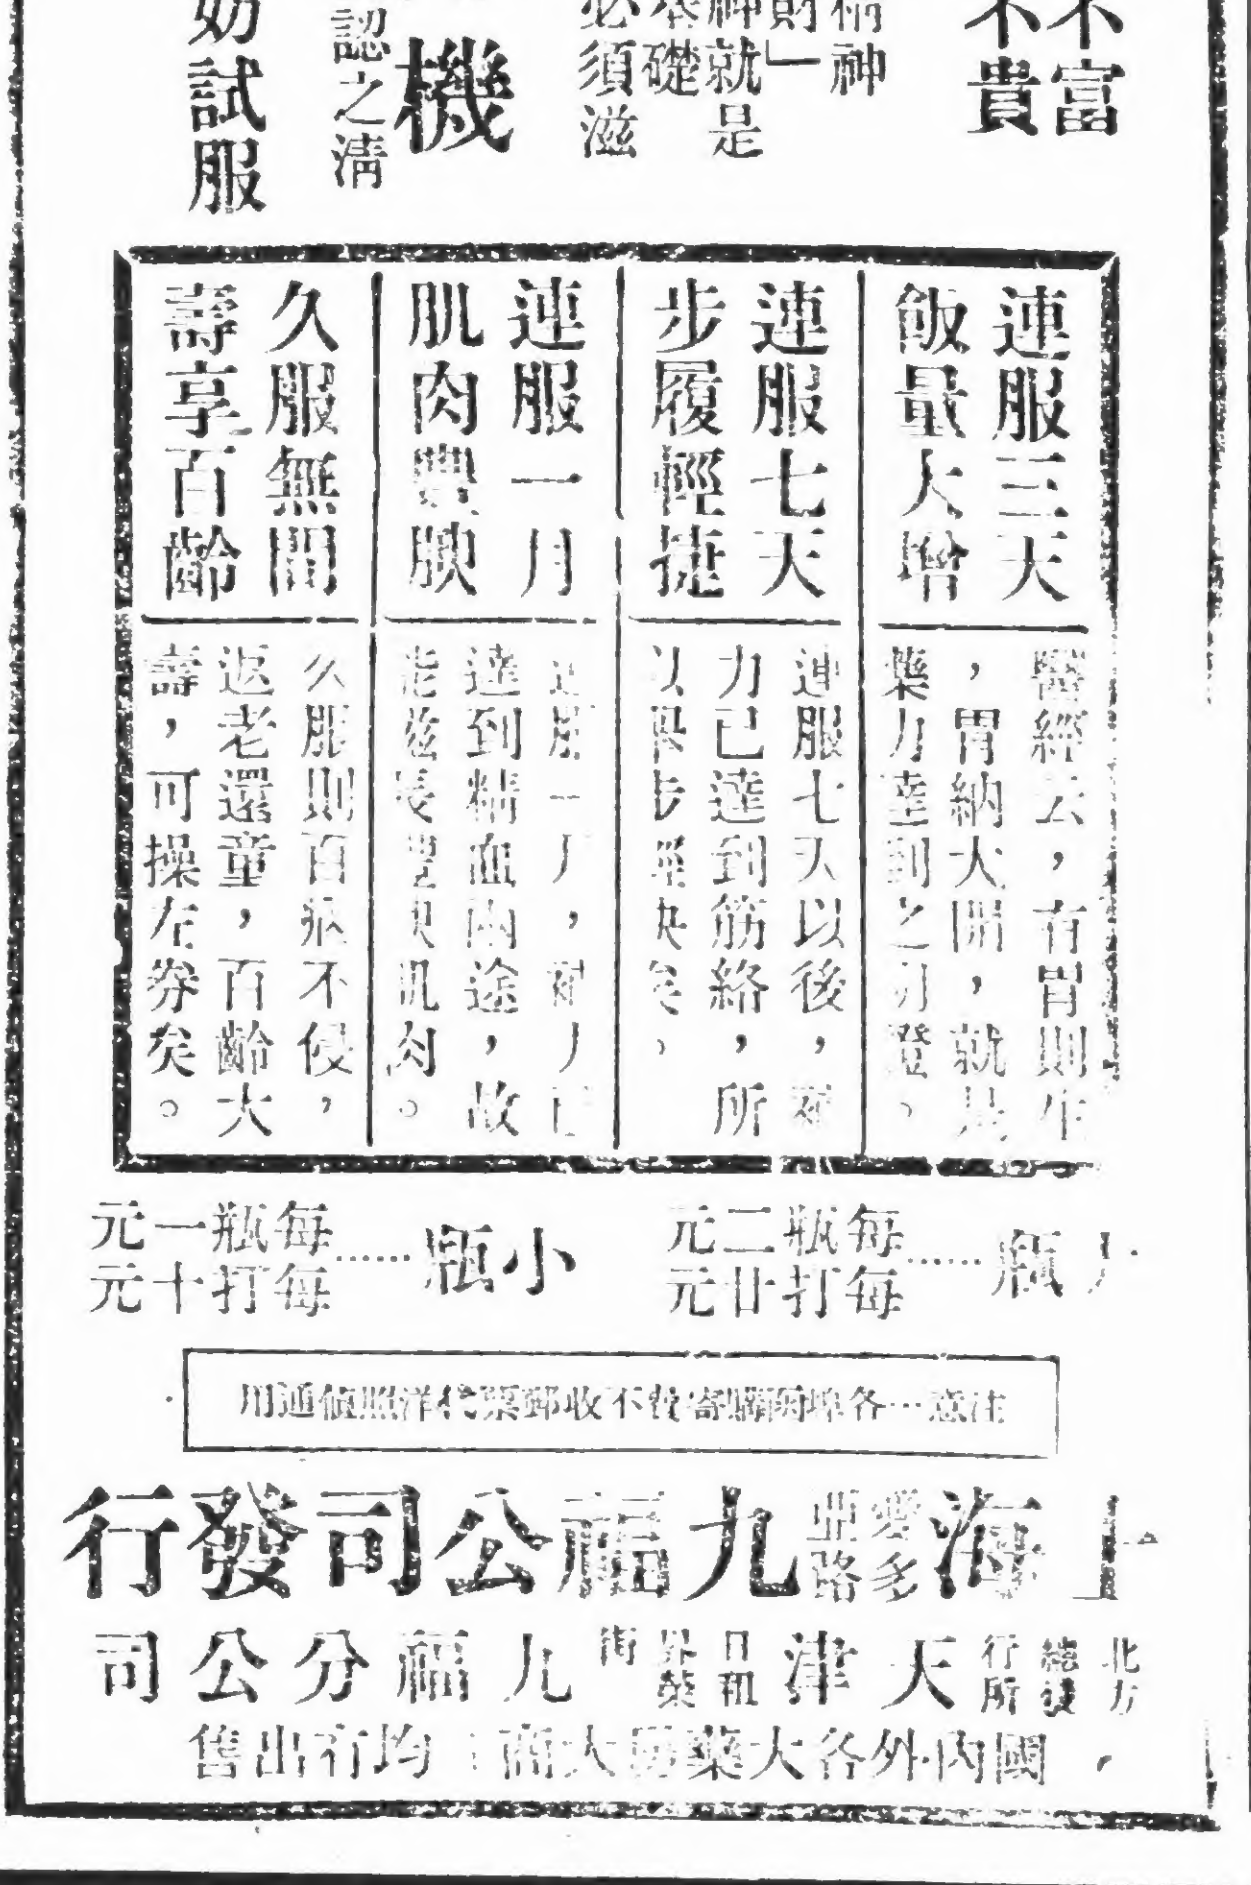 不富
不貴
精神
則」
神就是
基礎
必須滋
機
認之淸
妨試服
連服三天
飯量大增
醫經云，有胃則生
，胃納大開，就是
藥力達到之明證。
連服七天
步履輕捷
連服七天以後，補
力已達到筋絡，所
以步輕快矣。
連服一月
肌肉豐腴
連服一月，補力已
達到精血兩途，故
能滋長豐腴肌肉。
久服無間
壽享百齡
久服則百病不侵，
返老還童，百齡大
壽，可操左券矣。
大瓶……每瓶二元
每打廿元
小瓶……每瓶一元
每打十元
注意一各埠函購寄費不收郵票代洋照值通用
上海愛多亞路九福公司發行
北方總發行所天津日租界藥街九福分公司
國內外各大藥房大商均有出售